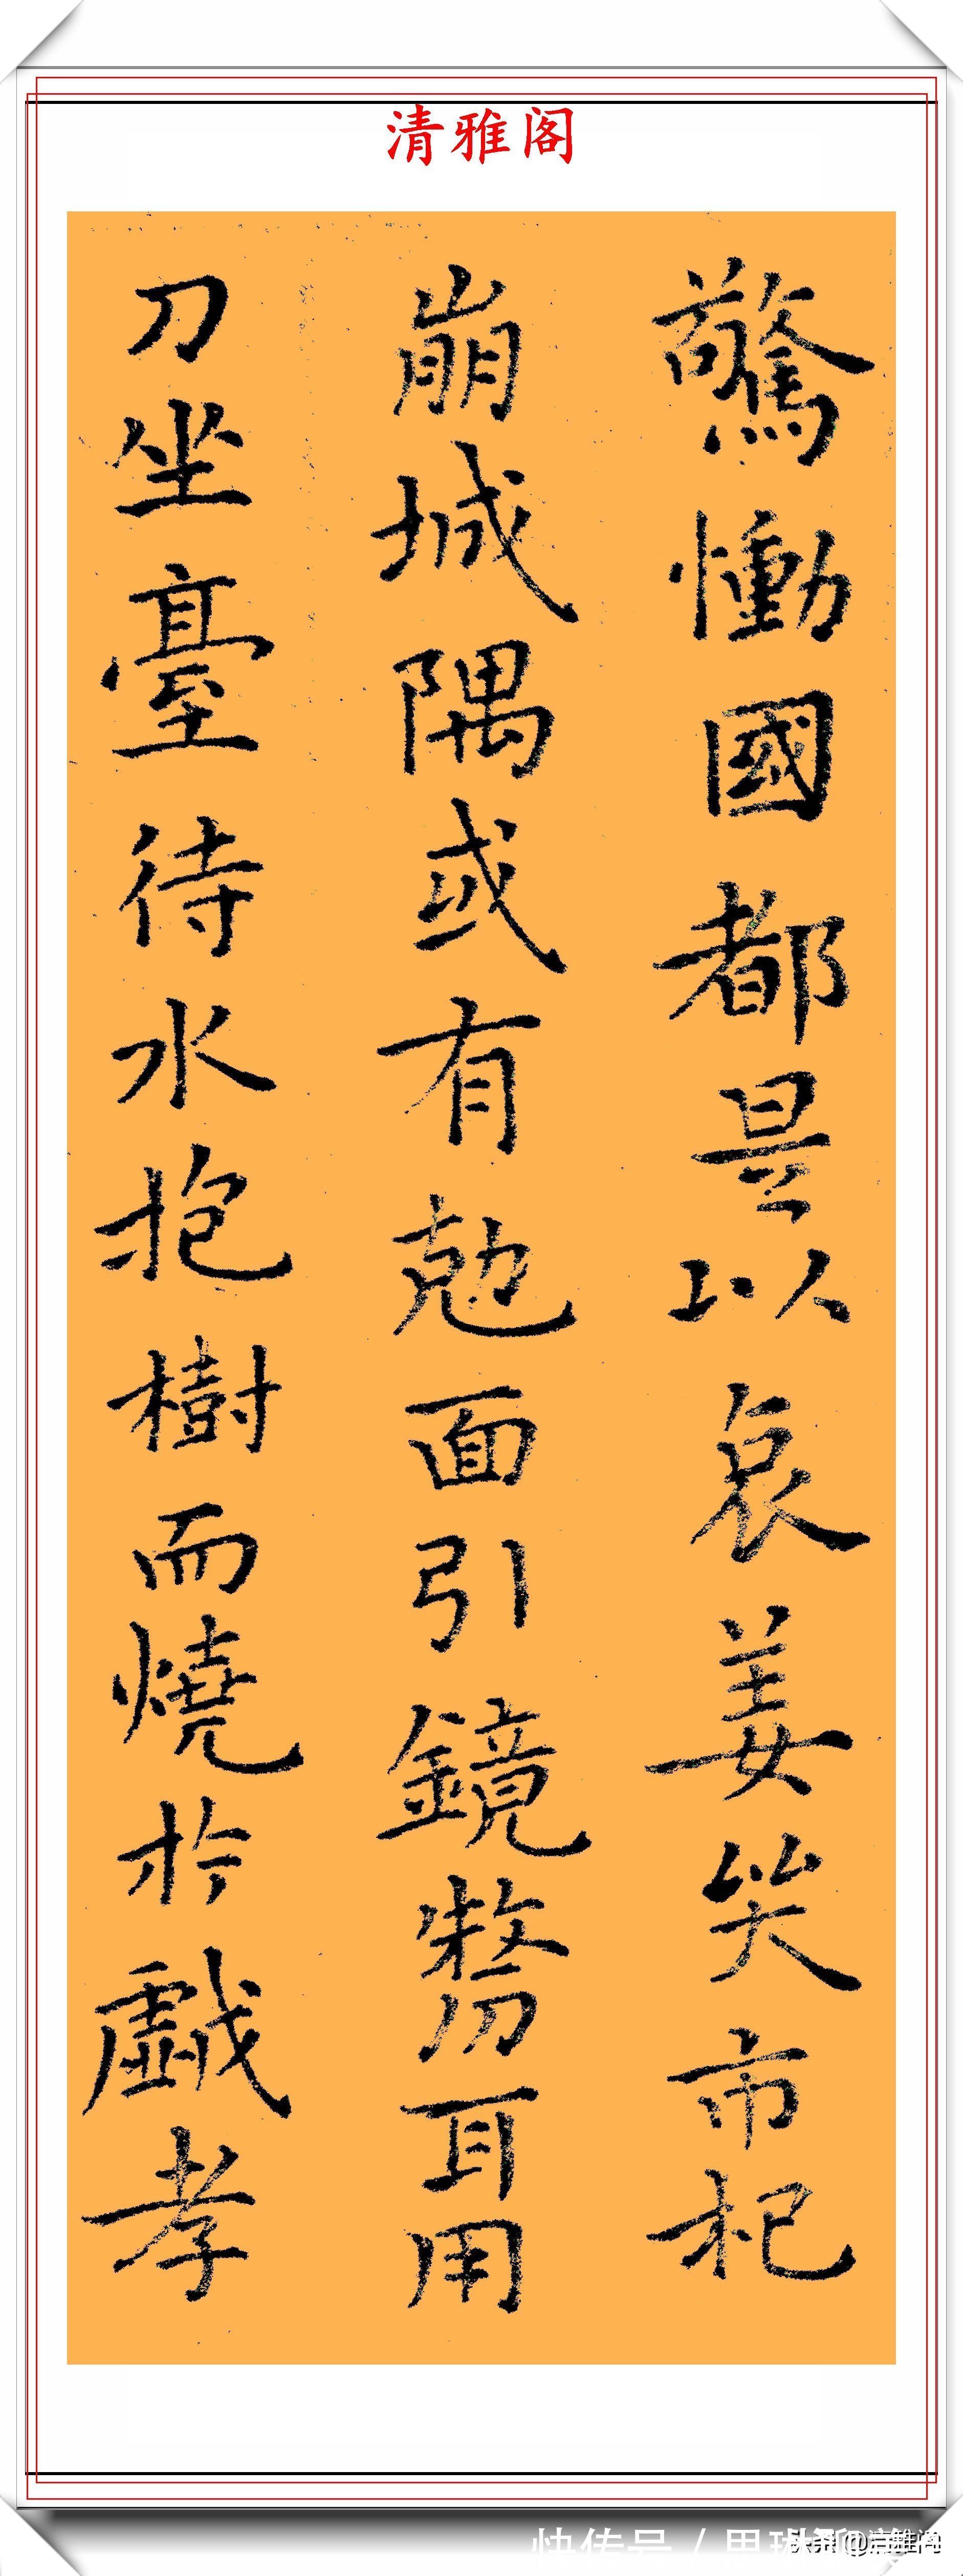 清雅阁
驚慟國都是以哀姜哭市杞
崩城隅或有剋面引鏡剺耳用
刀坐臺待水抱樹而燒於戲孝
快传号 /
@清雅阁